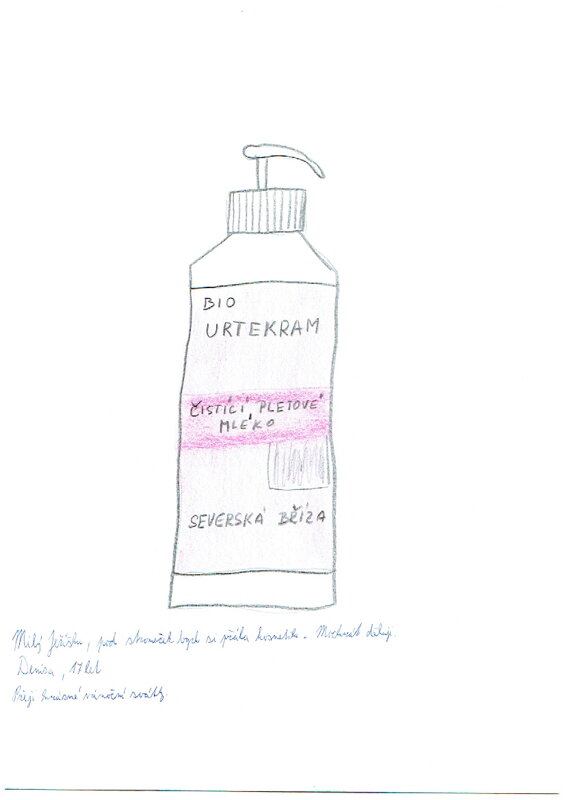 BIO
URTEKRAM
ČISTÍCÍ PLETOVÉ
MLÉKO
SEVERSKÁ BŘÍZA
Milý Ježíšku, pod stromeček bych si přála kosmetiku. Mockrát děkuji.
Denisa, 17 let
Přeji krásné vánoční svátky.